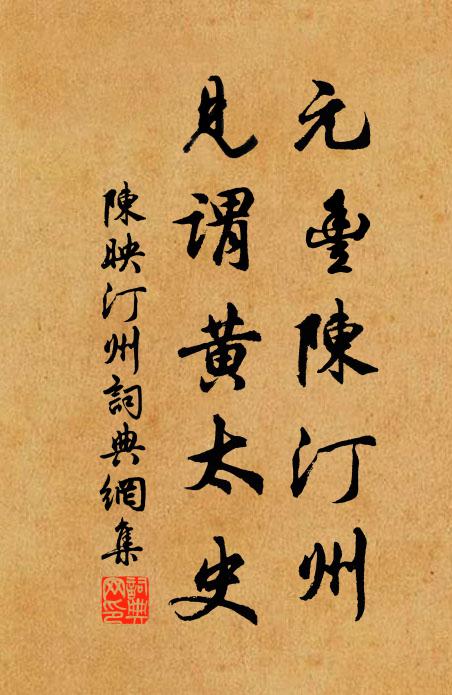 元豊陳汀州
見謂黄太史
陳映汀州詞典網集
詞典
网印